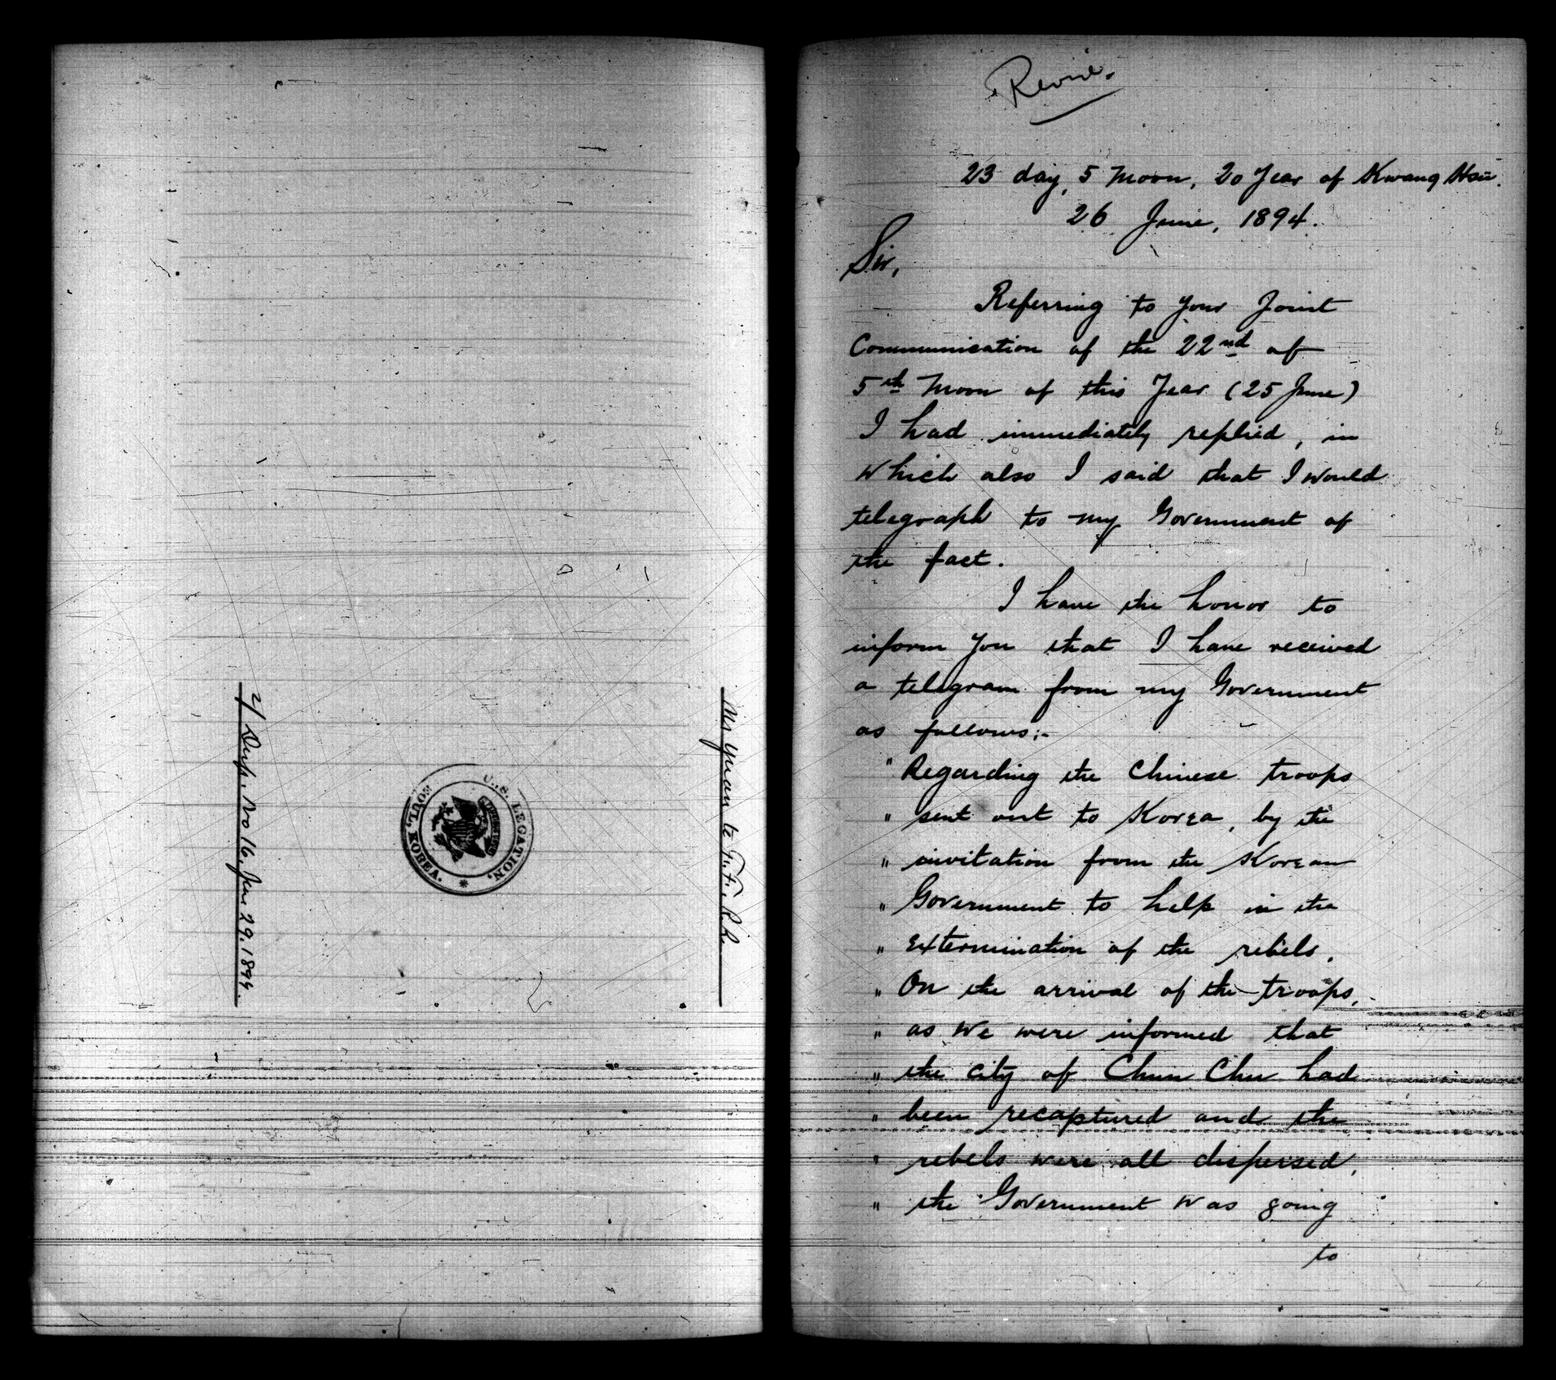 2/ Desp. No 16. Jun 29. 1894.
U.S. LEGATION,
SEOUL, KOREA.
Mr Yuan to F.F., R.R.
23 day, 5 Moon, 20 Year of Kwang Hsü.
26 June, 1894.
Sir,
Referring to your Joint
Communication of the 22nd of
5th Moon of this Year (25 June)
I had immediately replied, in
which also I said that I would
telegraph to my Government of
the fact.
I have the honor to
inform you that I have received
a telegram from my Government
as follows:-
"Regarding the Chinese troops
" sent out to Korea, by the
" invitation from the Korean
" Government to help in the
" Extermination of the rebels.
" On the arrival of the troops,
" as we were informed that
" the city of Chun Chu had
" been recaptured and the
" rebels were all dispersed,
" the Government was going
to